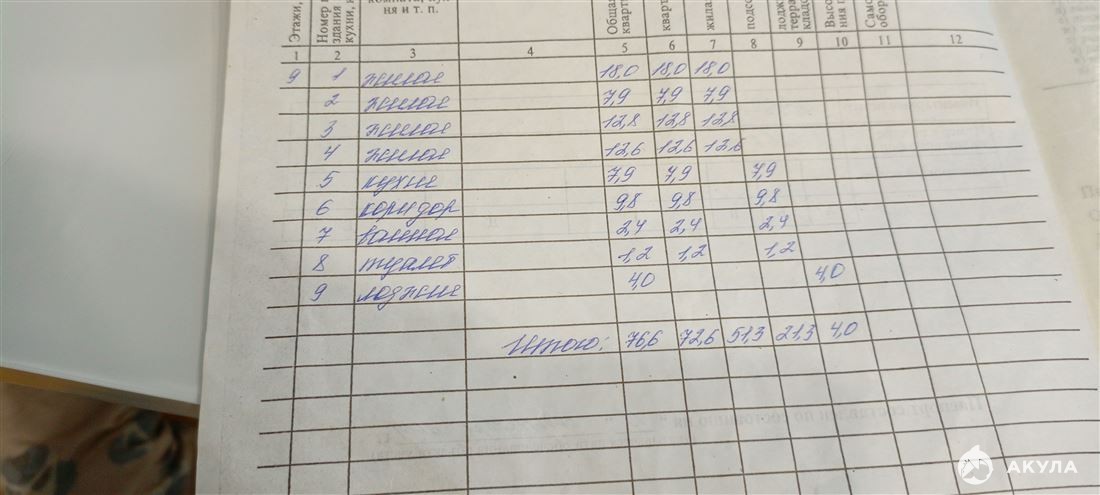 Этажи,
Номер
здания
кухни,
комната, кух-
ня и т. п.
Общая
кварт
кварт
жила
подсо
лодж
терра
кладо
Высо
ния п
Само
обор
1 2 3 4 5 6 7 8 9 10 11 12
9 1 жилая 18,0 18,0 18,0
2 жилая 7,9 7,9 7,9
3 жилая 12,8 12,8 12,8
4 жилая 12,6 12,6 12,6
5 кухня 7,9 7,9 7,9
6 коридор 9,8 9,8 9,8
7 ванная 2,4 2,4 2,4
8 туалет 1,2 1,2 1,2
9 лоджия 4,0 4,0
Итого: 76,6 72,6 51,3 21,3 4,0
АКУЛА